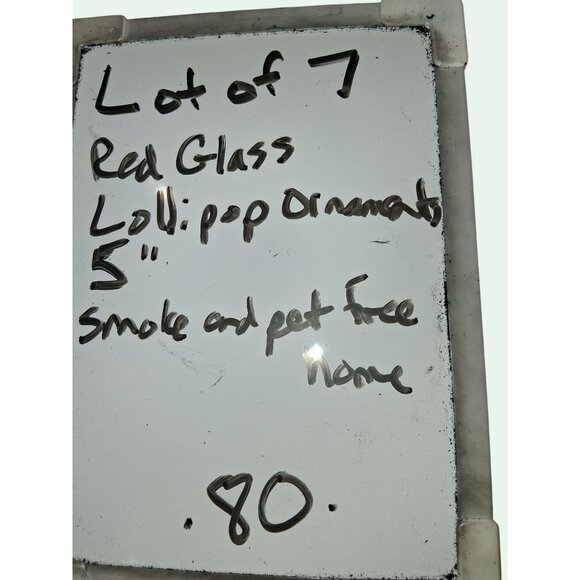 Lot of 7
Red Glass
Lollipop Ornaments
5"
smoke and pet free
home
.80.